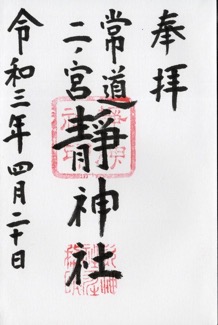 奉拝
常道二ノ宮
靜神社
令和三年四月二十日